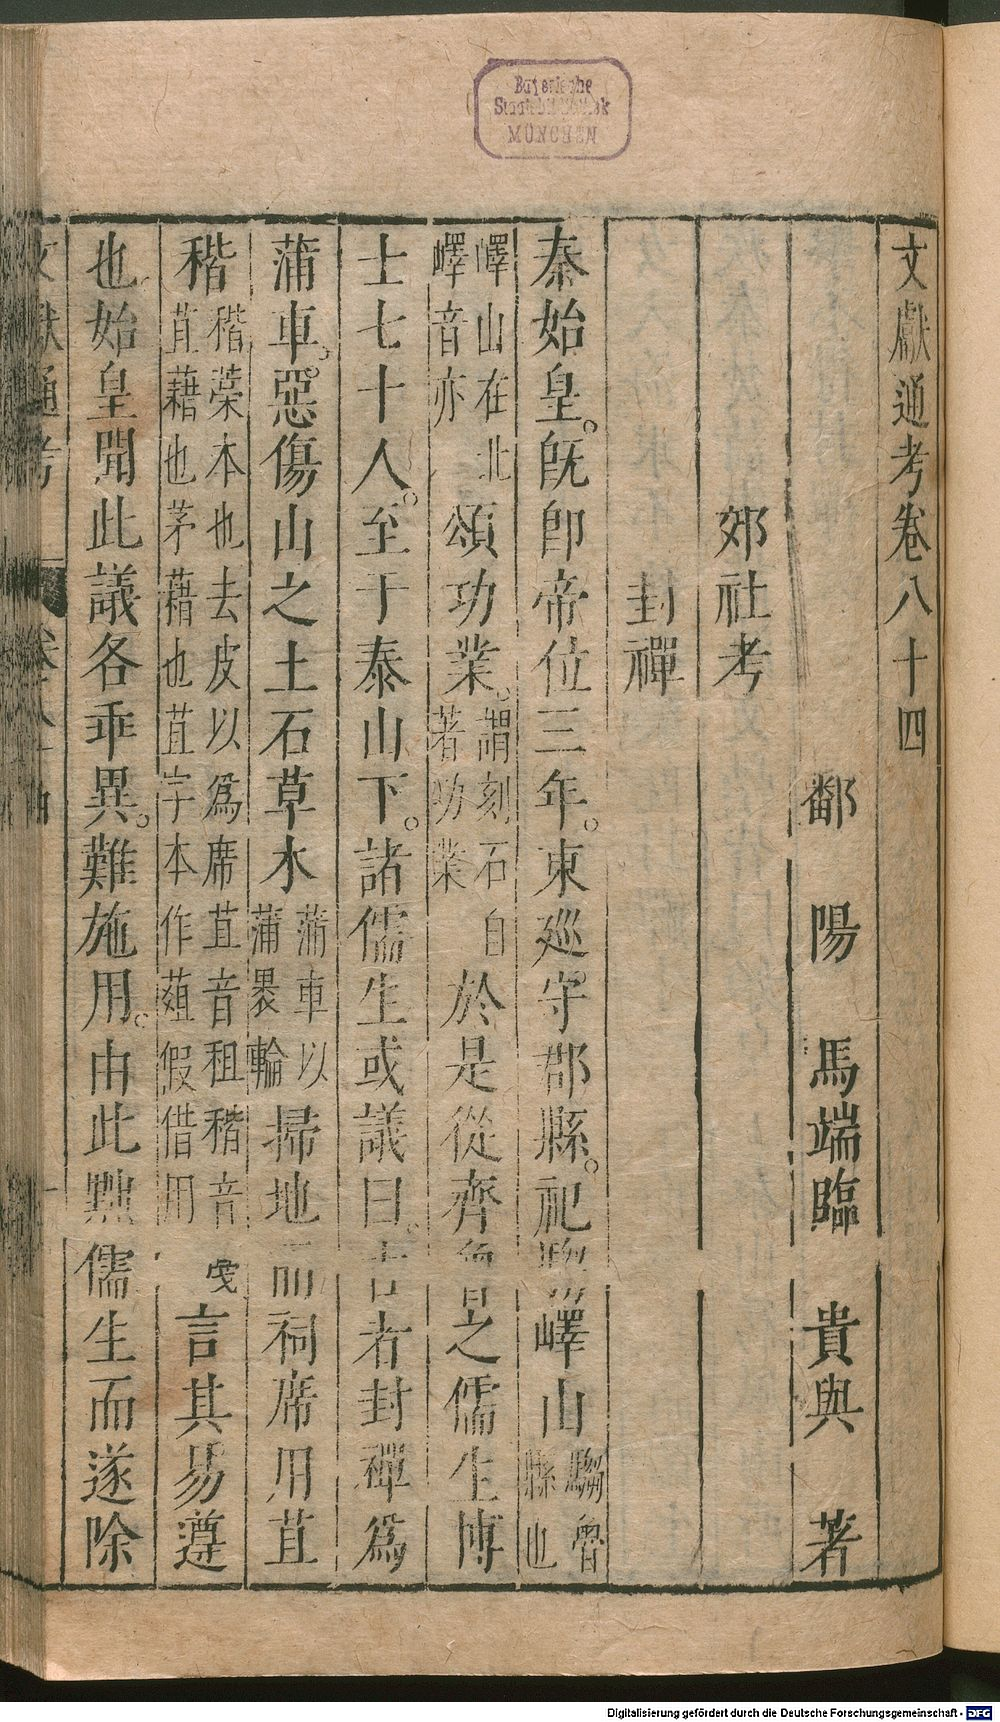 Bayerische
Staatsbibliothek
MÜNCHEN
文獻通考卷八十四
鄱陽馬端臨貴與著
郊社考
封禪
秦始皇。既即帝位三年。東巡守郡縣。祀騶嶧山騶魯縣也
嶧山在北嶧音亦頌功業。謂刻石自著功業於是從齊魯之儒生博
士七十人。至于泰山下。諸儒生或議曰。古者封禪爲
蒲車。惡傷山之土石草木蒲車以蒲裹輪掃地而祠席用苴
稭稭藁本也去皮以爲席苴音租稭音戛苴藉也茅藉也苴字本作蒩假借用言其易遵
也始皇聞此議各乖異。難施用。由此黜儒生而遂除
文獻通考 卷八十四 一
Digitalisierung gefördert durch die Deutsche Forschungsgemeinschaft - DFG